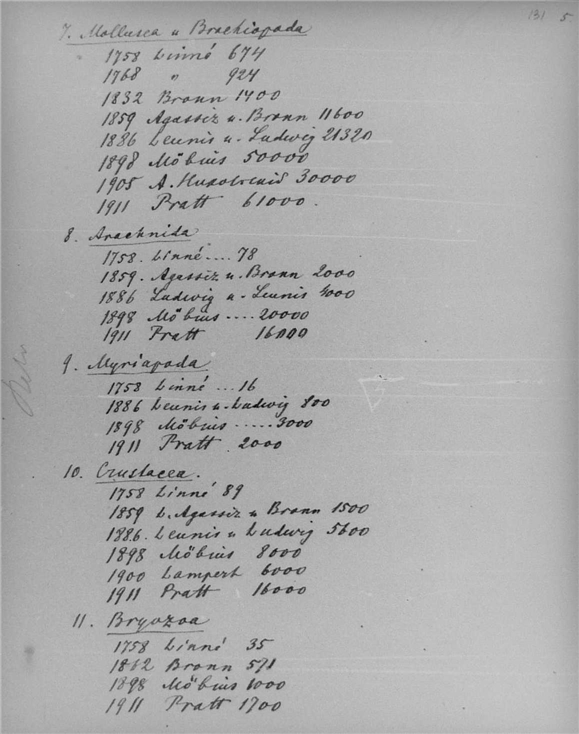 131 5.
7. Mollusca u Brachiopoda
1758 Linné 674
1768 " 924
1832 Bronn 1400
1859 Agassiz u. Bronn 11600
1886 Leunis u. Ludwig 21320
1898 Möbius 50000
1905 A. 30000
1911 Pratt 61000.
8. Arachnida
1758. Linné .... 78
1859. Agassiz u. Bronn 2000
1886 Ludwig u. Leunis 4000
1898 Möbius .... 20000
1911 Pratt 16000
9. Myriapoda
1758 Linné ... 16
1886 Leunis u. Ludwig 800
1898 Möbius ..... 3000
1911 Pratt 2000
10. Crustacea.
1758 Linné 89
1859 L. Agassiz u Bronn 1500
1886. Leunis u Ludwig 5600
1898 Möbius 8000
1900 Lampert 6000
1911 Pratt 16000
11. Bryozoa
1758 Linné 35
1862 Bronn 571
1898 Möbius 1000
1911 Pratt 1700